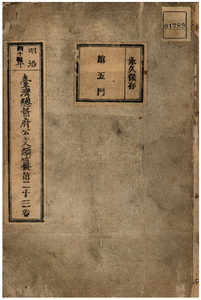 01785
永久保存
第五門
明治
四十四年
臺灣總督府公文類纂第二十三卷